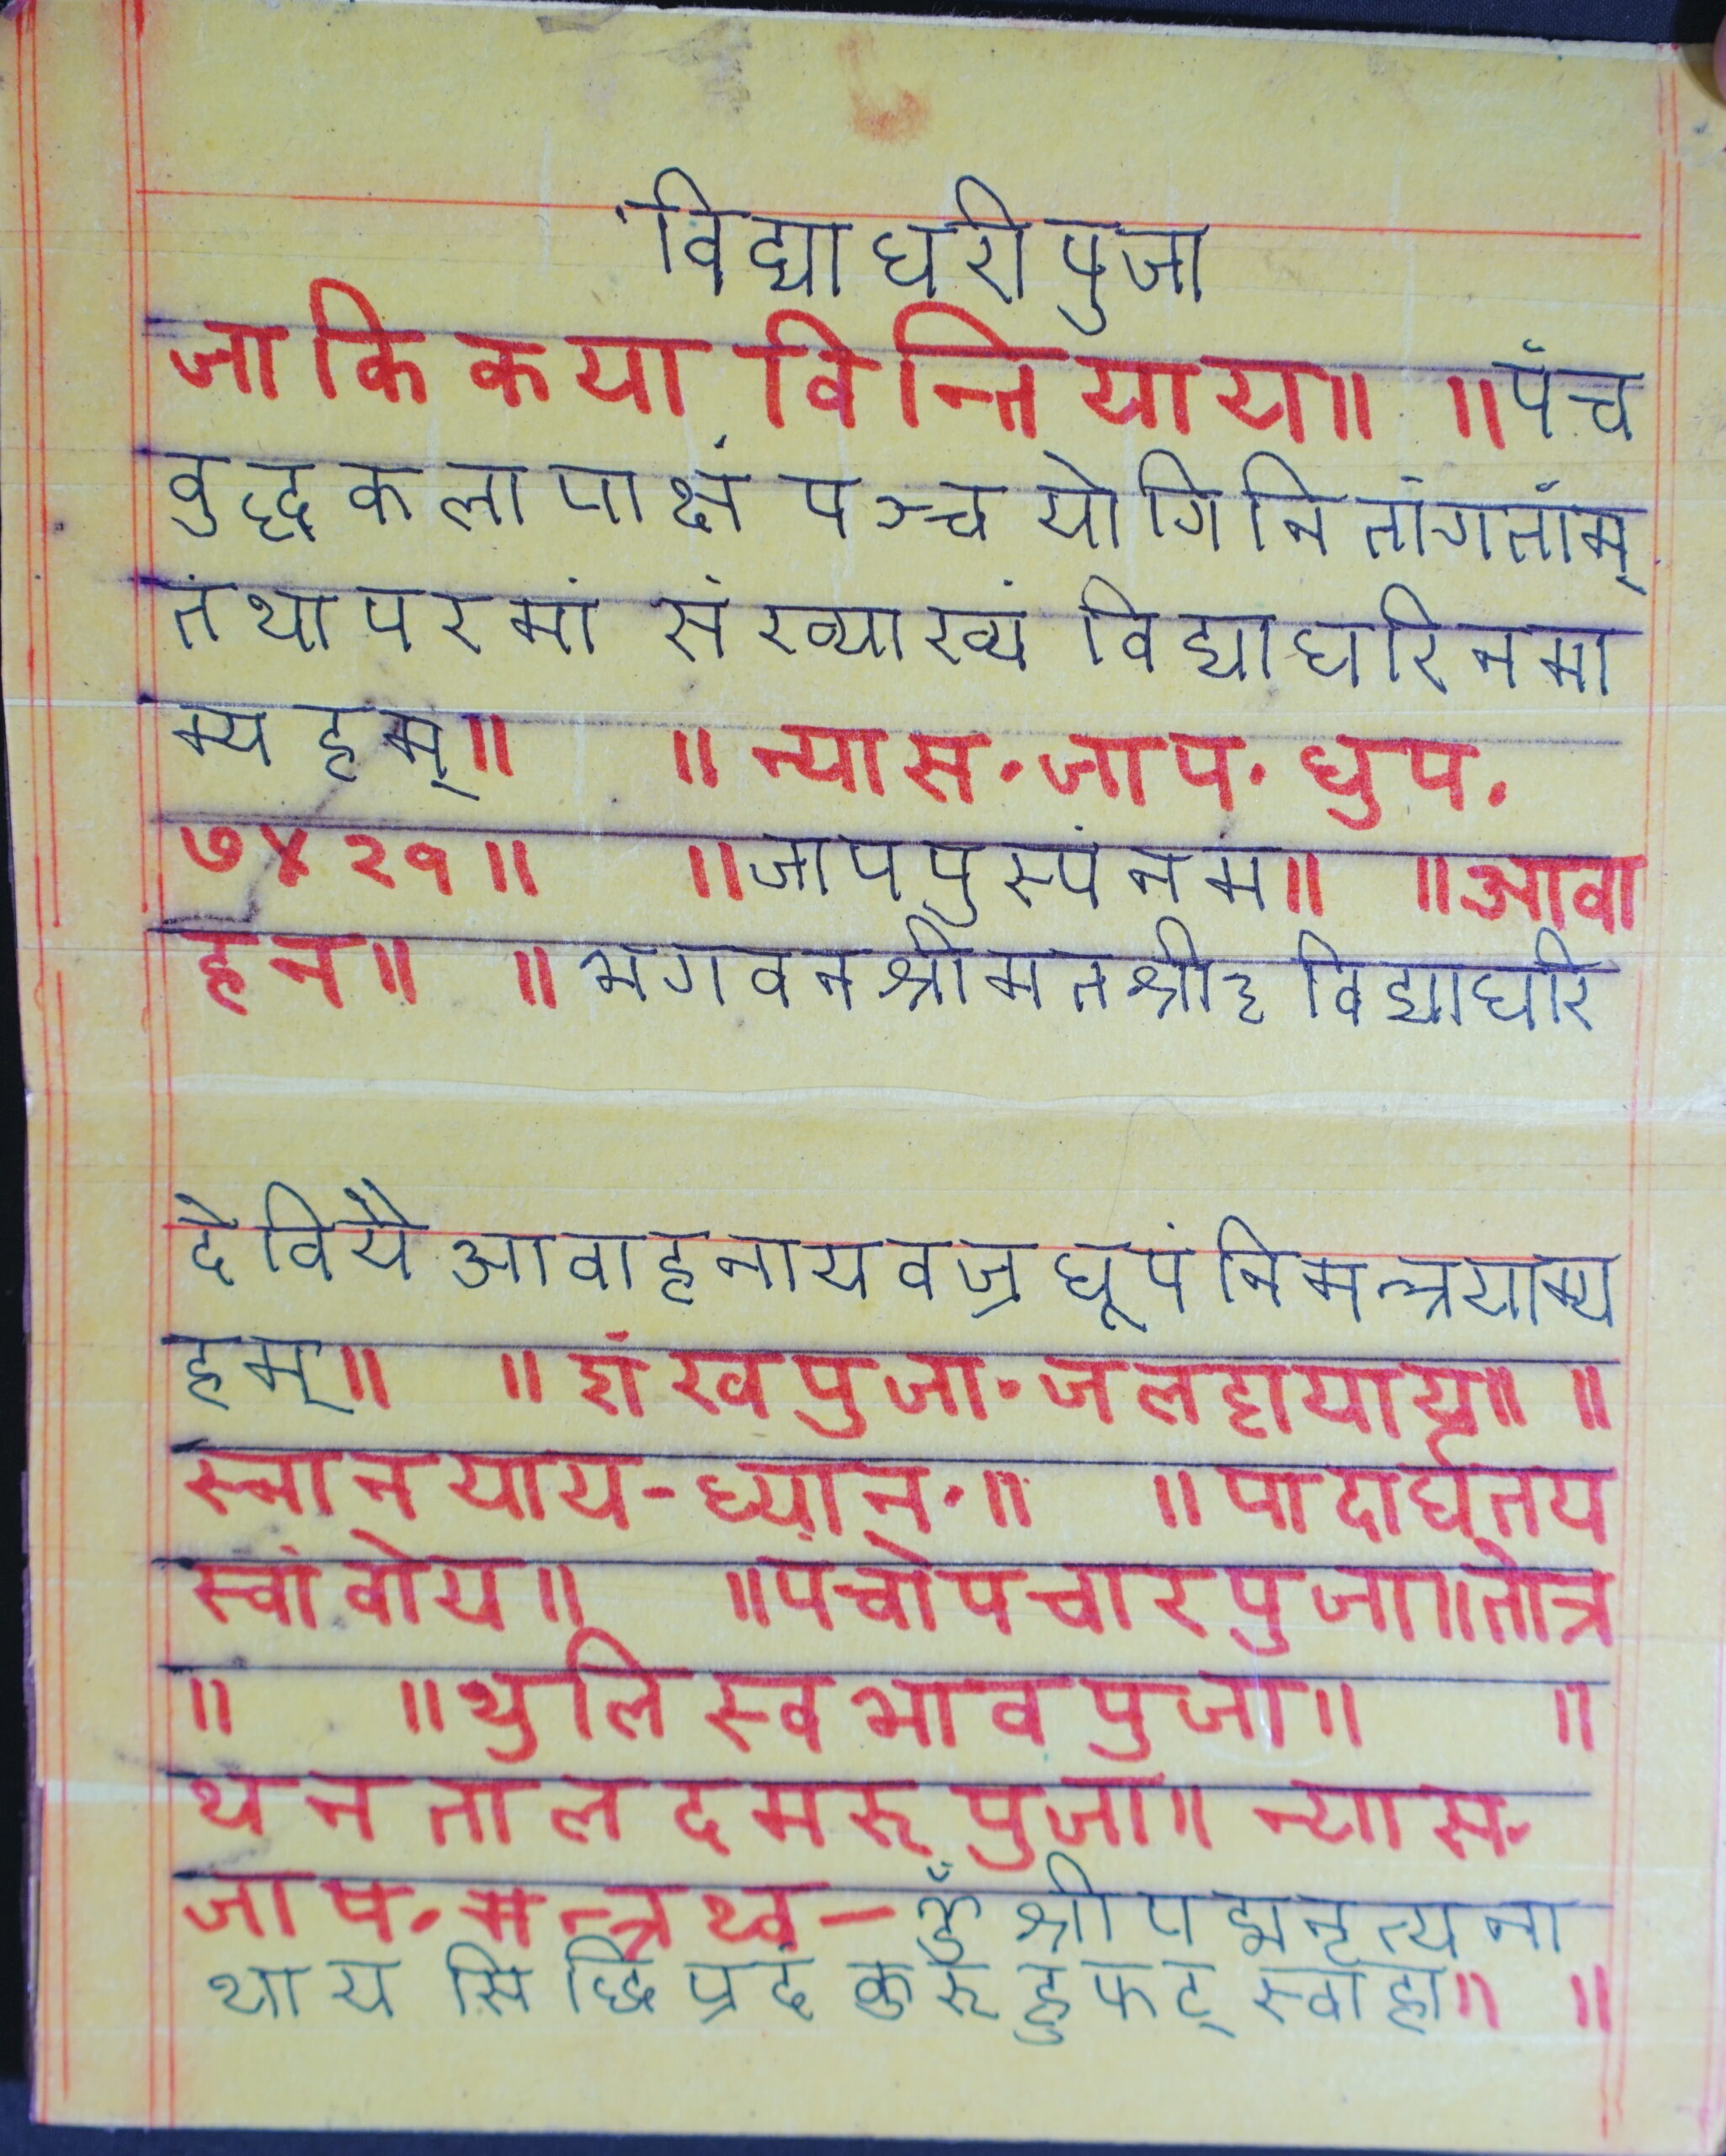 विद्याधरी पुजा
जाकि कया वि न्ति याय॥ ॥पंच
वुद्ध कलापाक्षं पञ्च योगिनि तांगतांम्
तंथा परमां संख्याख्यं विद्याधरि नमा
म्यहम्॥ ॥ न्यास·जाप· धुप·
७४२१॥ ॥जाप पुस्पं नमं॥ ॥आवा
हन॥ ॥ भगवन श्रीमत श्री३ विद्याधरि
देवियै आवाहनाय वज्र धूपं निमन्त्रयाम्य
हम्॥ ॥ शंख पुजा·जलहायाय॥ ॥
स्नान याय-ध्यान·॥ ॥पादार्घ तय
स्वां वोय॥ ॥पंचोपचार पुजा॥तोत्र
॥ ॥ थुलि स्वभाव पुजा॥ ॥
थन ताल दमरू पुजा॥ न्यास·
जाप· मन्त्र थ्व — ॐ श्री पद्मनृत्यना
थाय सिद्धि प्रदं कुरू हुं फट् स्वाहा॥ ॥